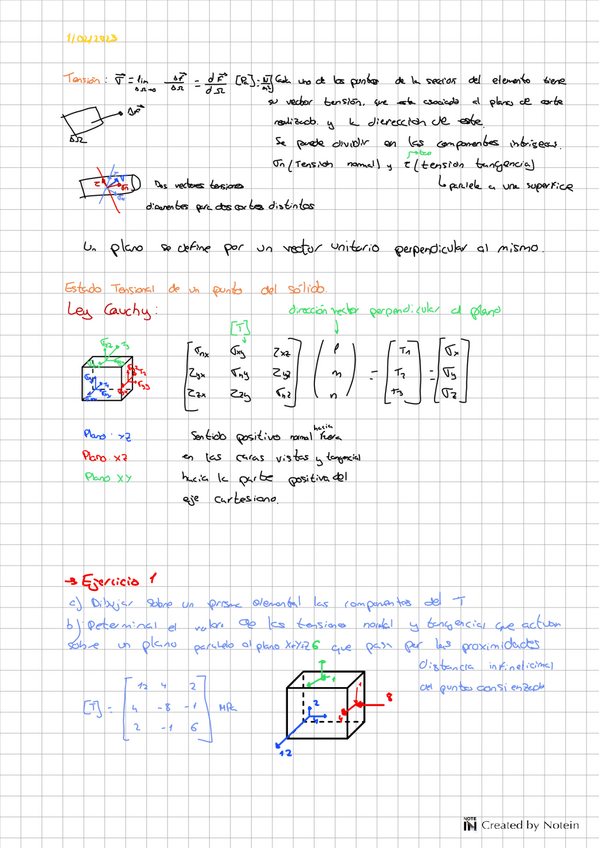 1/02/2023
Tensión: σ⃗ = lim ΔΩ→0 ΔF⃗/ΔΩ = dF⃗/dΩ [Pa]: N/m² Cada uno de los puntos de la sección del elemento tiene
su vector tensión, que está asociado al plano de corte
realizado y la dirección de este.
Se puede dividir en las componentes intrísecas.
σn (Tensión normal) y τ (tensión tangencial)
↳ paralela a una superfice
ΔF⃗
ΔΩ
Dos vectores tensiones
diferentes para dos cortes distintos
Un plano se define por un vector unitario perpendicular al mismo.
Estado Tensional de un punto del sólido.
Ley Cauchy: dirección vector perpendicular al plano
[T]
σnx σxy τxz l T1 σx
τyx σny τyz m = T2 = σy
τzx τzy σnz n T3 σz
Plano: yz Sentido positivo normal hacia fuera
Plano: xz en las caras vistas y tangencial
Plano XY hacia la parte positiva del
eje cartesiano.
→ Ejercicio 1
a) Dibujar sobre un prisma elemental las componentes del T
b) Determinal el valor de las tensiones normal y tangencial que actúan
sobre un plano paralelo al plano X+Y+Z=6 que pasa por las proximidades
distancia infinelicimal
del punto consierado
[T] = 12 4 2
4 -8 -1 MPa
2 -1 6
8
2
12
NOTE IN Created by Notein